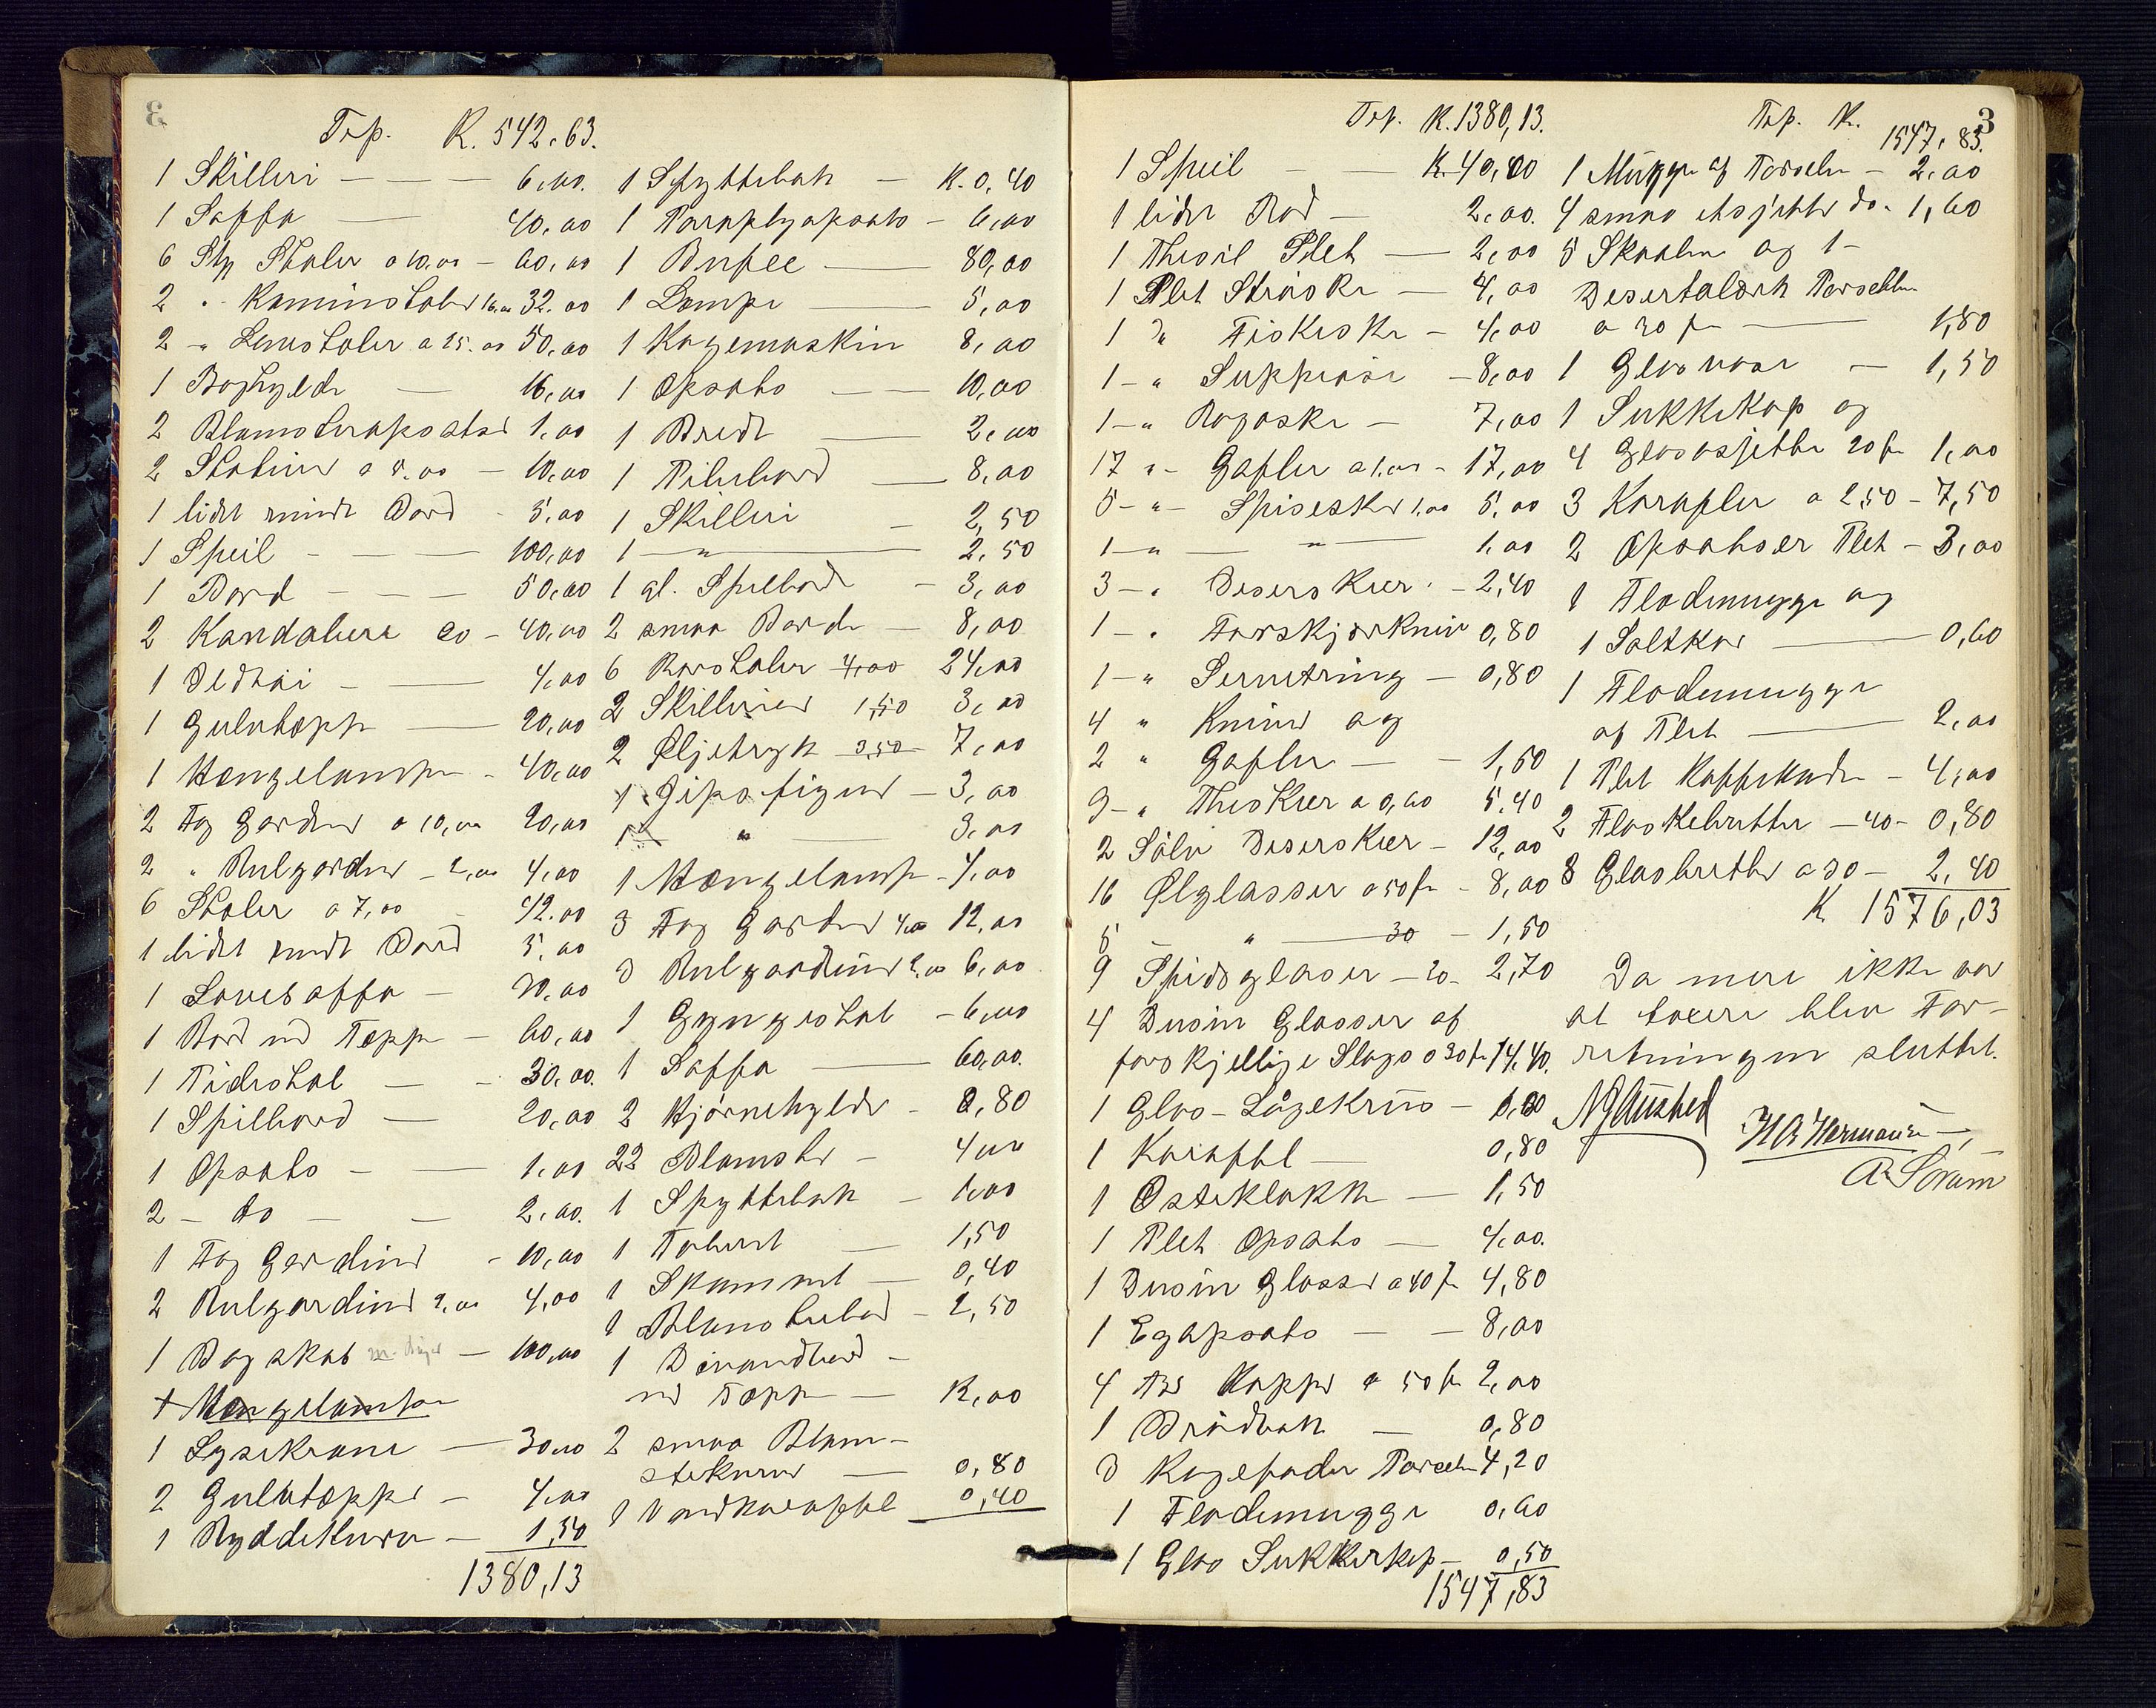 3
Trp. K. 542,63.
1 Skilleri — 6,00.
1 Soffa — 40,00
6 Stp Stoler a 10,00 — 60,00
2 " Kaminstoler 16,00 32,00
2 " Lenestoler a 25,00 50,00
1 Boghylde — 16,00
2 Blomsteropsatser 1,00
2 Statuer a 5,00 — 10,00
1 lidet rundt Bord — 5,00
1 Speil — 100,00
1 Bord — 50,00
2 Kandalere 20 — 40,00
1 — 4,00
1 Gulvtæppe — 20,00
1 Hængelampe — 40,00
2 Fag Gardiner a 10,00 20,00
2 " Rulgardiner — 2,00 4,00
6 Stoler a 7,00 — 42,00
1 lidet rundt Bord 5,00
1 Soffa — 20,00
1 Bord med Tæppe — 60,00
1 — 30,00.
1 Spillbord — 20,00
1 Opsats — 1,00
2 — do — 2,00.
1 Fag Gardiner — 10,00
2 Rulgardiner 2,00 4,00
1 Bogskab — 100,00
+ Hængelampe
1 Lysekrone — 30,00
2 Gulvtæpper — 4,00
1 Ryddekurv — 1,50
1380,13
1 Spyttebak — K. 0,40
1 Paraplyopsats — 6,00
1 Buffee — 80,00
1 Lampe — 5,00
1 Kagemaskin 8,00
1 Opsats — 10,00
1 Bredt — 2,00
1 Pilebord — 8,00
1 Skilleri — 2,50
1 — " — 2,50
1 gl. Spilbord — 3,00
2 smaa Borde — 8,00
6 Rørstoler 4,00 24,00
2 Skillerier 1,50 3,00
2 Oljetryk 3,50 7,00
1 Gipsfigur — 3,00
1 " — 3,00
1 Hængelampe — 4,00
3 Fag Gardiner 4,00 12,00
3 Rulgardiner 2,00 6,00
1 Gyngestol — 6,00
1 Soffa — 60,00.
2 Hjörnehylder — 0,80
22 Blomster — 4,00
1 Spyttebak — 1,00
1 Taburet — 1,50
1 Skammel — 0,40
1 — 2,50
1
med Tæppe —
2 smaa Blom-
sterkurve — 0,80
1 Vandkaraffel 0,40
3
Trp. K. 1380,13.
1 Speil — K. 40,00
1 lidet Bord — 2,00.
1 Thesil Plet — 2,00
1 Plet Ströske — 4,00
1 " Fiskeske — 4,00
1 — " Suppeøse — 8,00
1 — " Ragoske — 7,00
17 " — Gafler a 1,00 — 17,00
5 — " — Spiseskeer 1,00 5,00
1 — " — " — 1,00
3 — " Deserskeer — 2,40
1 — " Forskjærkniv 0,80
1 — " Servietring — 0,80
4 " Knive og
2 " Gafler — 1,50
9 — " Theskeer a 0,60 5,40
2 Sölv Deserskeer — 12,00
16 Ølglasser a 50 ør — 8,00
5 — " — 30 — 1,50
9 Spidsglaser — 30 — 2,70
4 Dusin Glasser af
forskjellige Slags a 30 ør 14,40.
1 Glas — Lågekrus —
1 Karaffel — 0,80
1 Osteklokke — 1,50
1 Plet Opsats — 4,00.
1 Dusin Glasser a 40 ør 4,80
1 Egopsats — 8,00
4 Par Kopper a 50 ør 2,00
1 Brödbak — 0,80
3 Kagefade Porcelen 4,20
1 Flödemugge 0,60
1 Glas Sukkerkop — 0,50
1547,83
Trp. K. 1547,83.
1 Mugge af Porcelen — 2,00
4 smaa Asjetter do. 1,60
5 Skaaler og 1
Deserttalærk Porcellen
a 30 ør — 1,80
1 Glasvase — 1,50
1 Sukkekop og
4 Glasasjetter 20 ør 1,00
3 Karafler a 2,50 — 7,50
2 Opsatser Plet — 3,00
1 Flødemugge og
1 Saltkar — 0,60
1 Flødemugge
af Plet — 2,00
1 Plet Kaffekande — 4,00
2 Flaskebretter — 40 — 0,80
8 Glasbretter a 30 — 2,40
K 1576,03
Da mere ikke var
at taxere blev For-
retningen sluttet.
H A Hermansen
A Soram